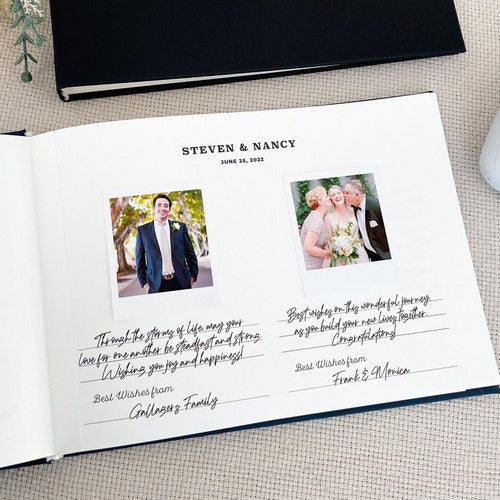 STEVEN & NANCY
JUNE 25, 2022
Through the storms of life, may your
love for one another be steadfast and strong.
Wishing you joy and happiness!
Best Wishes from
Gallagers Family
Best wishes on this wonderful journey
as you build your new lives together.
Congratulations!
Best Wishes from
Frank & Monica